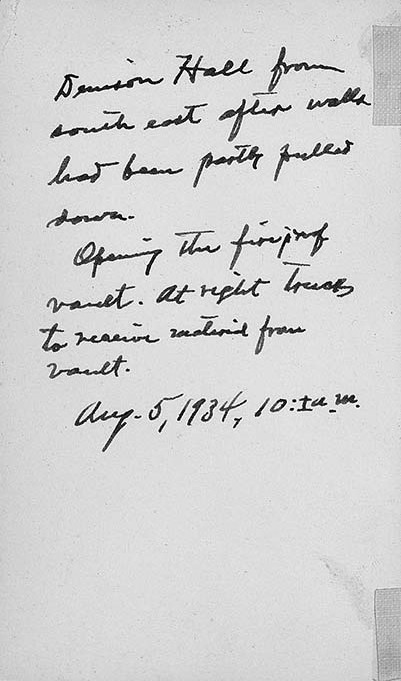 Denison Hall from
south east after walls
had been partly pulled
down.
Opening the fireproof
vault. At right trucks
to receive material from
vault.
Aug. 5, 1934, 10: a.m.